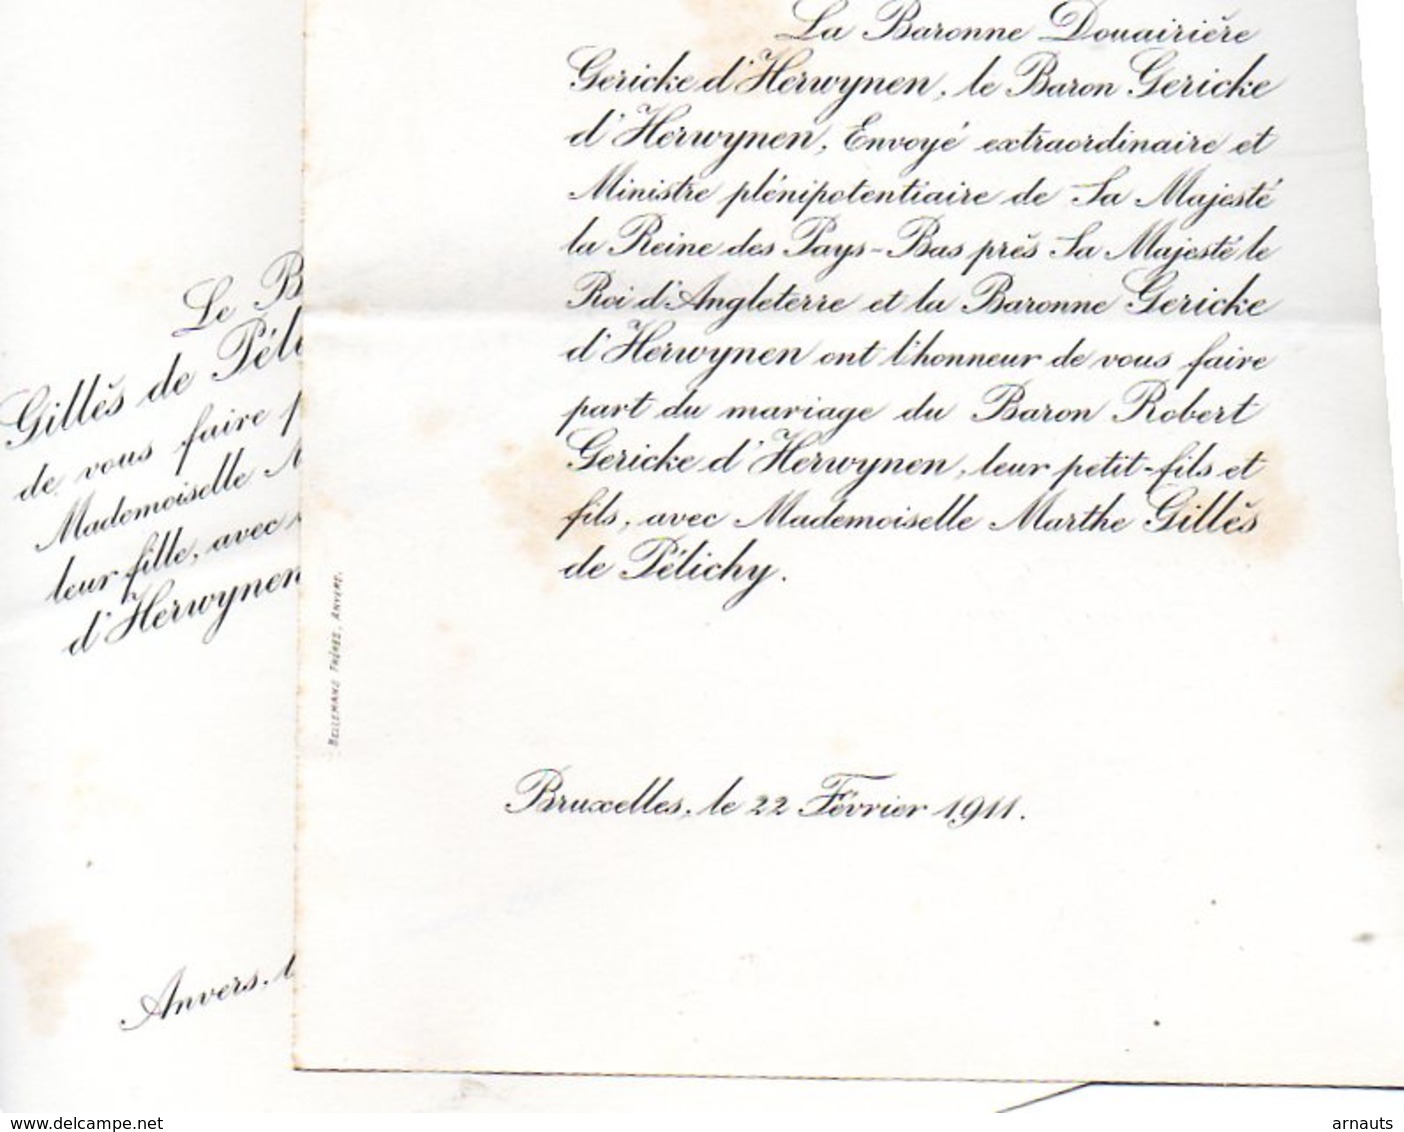 La Baronne Douairière
Gericke d'Herwynen, le Baron Gericke
d'Herwynen, Envoyé extraordinaire et
Ministre plénipotentiaire de Sa Majesté
la Reine des Pays-Bas près Sa Majesté le
Roi d'Angleterre et la Baronne Gericke
d'Herwynen ont l'honneur de vous faire
part du mariage du Baron Robert
Gericke d'Herwynen, leur petit-fils et
fils, avec Mademoiselle Marthe Gillès
de Pélichy.
Bruxelles, le 22 Février 1911.
BELLEMANS FRÈRES, ANVERS.
Le B
Gillès de Péli
de vous faire p
Mademoiselle M
leur fille, avec
d'Herwynen
Anvers, l
www.delcampe.net
arnauts